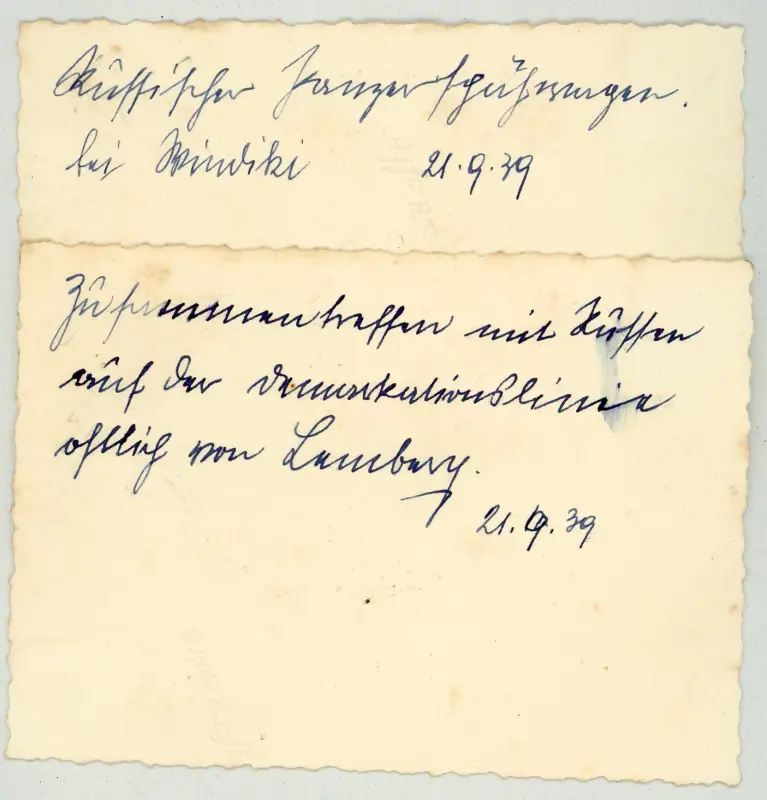 Russischer Panzerspähwagen.
bei Windiki 21.9.39
Zusammentreffen mit Russen
auf der Demarkationslinie
ostlich von Lemberg.
21.9.39